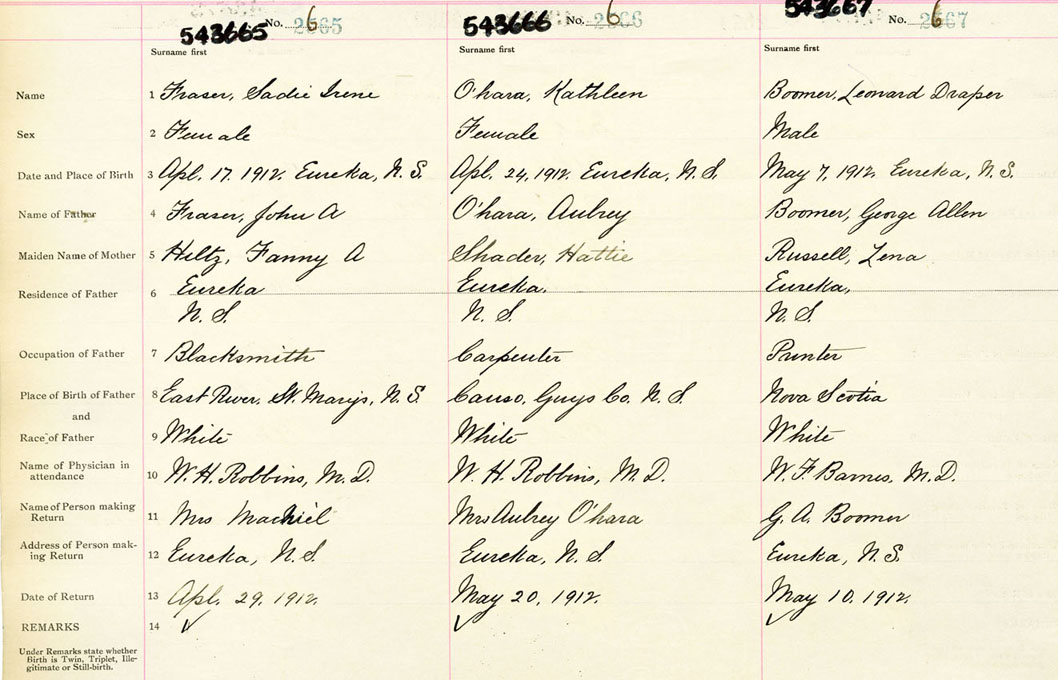 543665 No. 6 2665 543666 No. 6 2666 543667 No. 6 2667
Surname first Surname first Surname first
Name 1 Fraser, Sadie Irene O'hara, Kathleen Boomer, Leonard Draper
Sex 2 Female Female Male
Date and Place of Birth 3 Apl. 17. 1912. Eureka, N.S. Apl. 24, 1912. Eureka, N.S. May 7, 1912. Eureka, N.S.
Name of Father 4 Fraser, John A O'hara, Aubrey Boomer, George Allen
Maiden Name of Mother 5 Hiltz, Fanny A Shader, Hattie Russell, Lena
Residence of Father 6 Eureka Eureka. Eureka,
N.S. N.S. N.S.
Occupation of Father 7 Blacksmith Carpenter Printer
Place of Birth of Father 8 East River, St. Marys, N.S. Canso, Guys Co. N.S. Nova Scotia
and
Race of Father 9 White White White
Name of Physician in attendance 10 W. H. Robbins, M.D. W. H. Robbins, M.D. W. F. Barnes, M.D.
Name of Person making Return 11 Mrs Mrs Aubrey O'hara G. A. Boomer
Address of Person mak-
ing Return 12 Eureka, N.S. Eureka, N.S. Eureka, N.S.
Date of Return 13 Apl. 29, 1912. May 20, 1912. May 10, 1912.
REMARKS 14 √ √ √
Under Remarks state whether
Birth is Twin, Triplet, Ille-
gitimate or Still-birth.